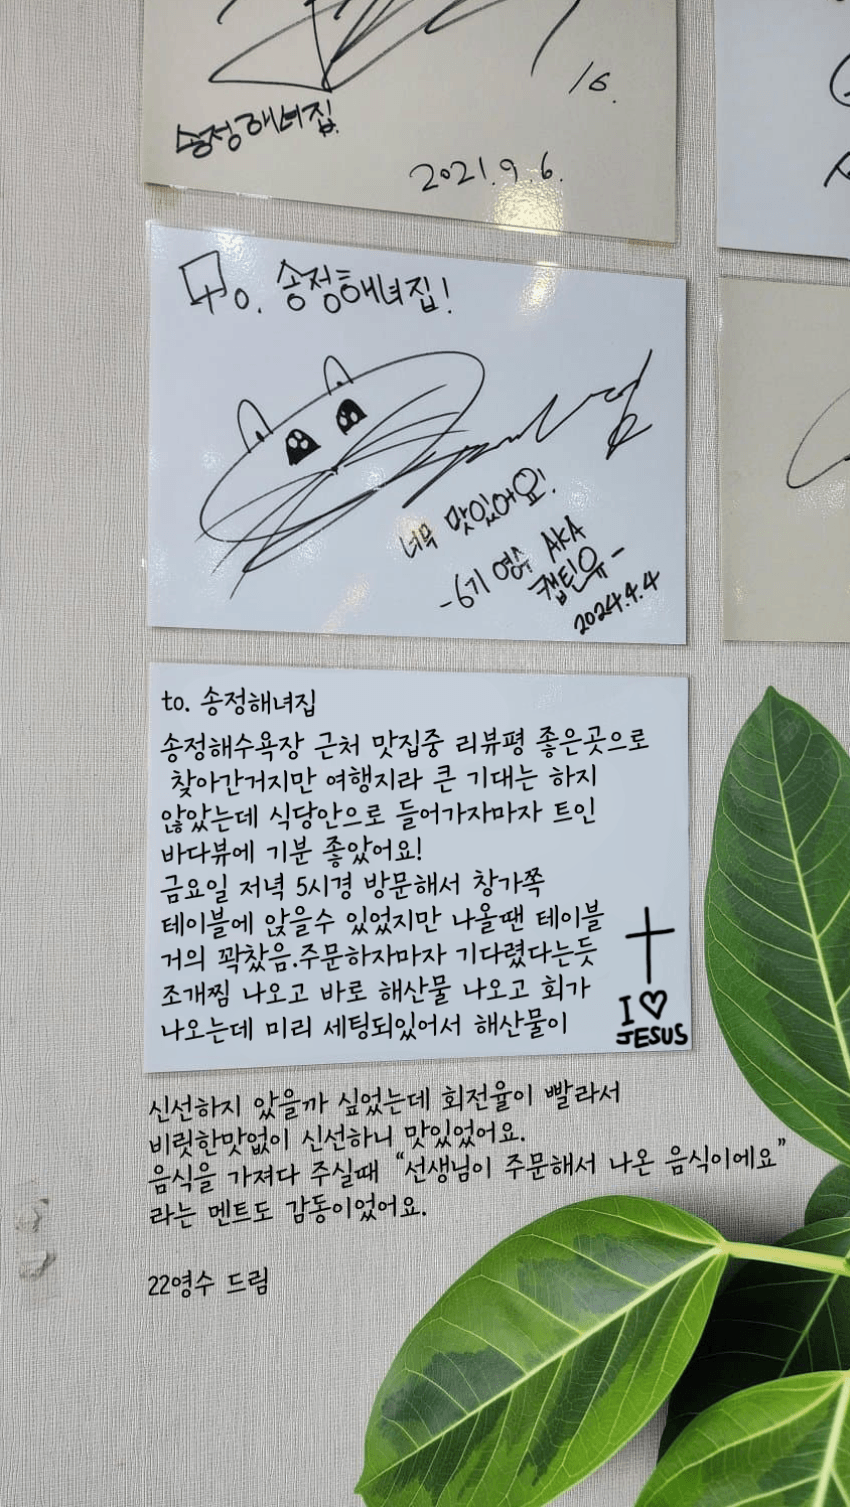 16.
송정해녀집
2021.9.6.
To. 송정해녀집!
너무 맛있어요!
-6기 영수 AKA
캡틴유-
2024.4.4
to. 송정해녀집
송정해수욕장 근처 맛집중 리뷰평 좋은곳으로
찾아간거지만 여행지라 큰 기대는 하지
않았는데 식당안으로 들어가자마자 트인
바다뷰에 기분 좋았어요!
금요일 저녁 5시경 방문해서 창가쪽
테이블에 앉을수 있었지만 나올땐 테이블
거의 꽉찼음.주문하자마자 기다렸다는듯
조개찜 나오고 바로 해산물 나오고 회가
나오는데 미리 세팅되있어서 해산물이
I ♡
JESUS
신선하지 않을까 싶었는데 회전율이 빨라서
비릿한맛없이 신선하니 맛있었어요.
음식을 가져다 주실때 “선생님이 주문해서 나온 음식이에요”
라는 멘트도 감동이었어요.
22영수 드림